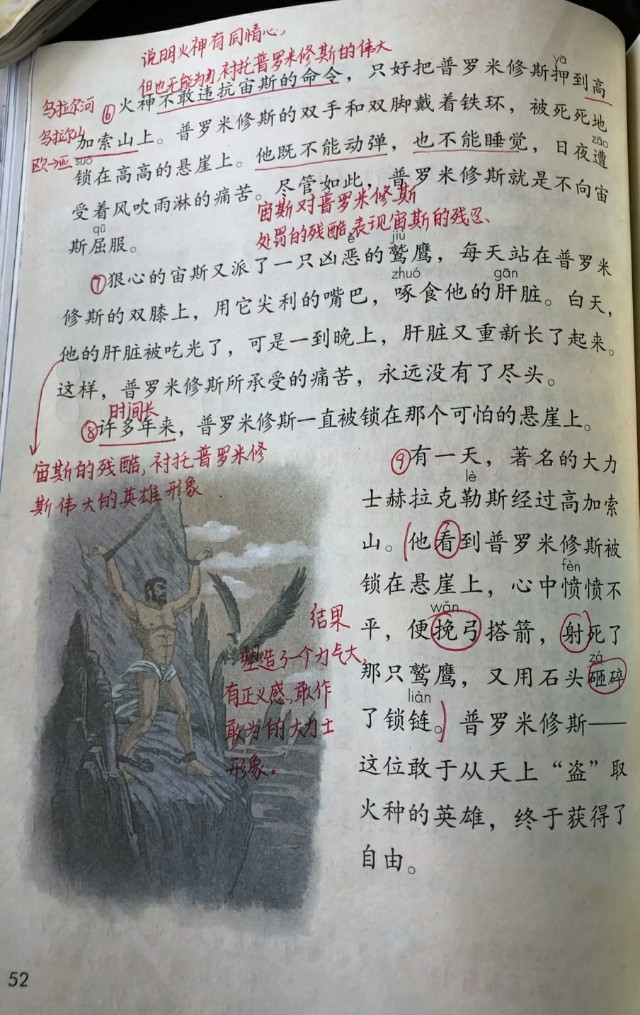 说明火神有同情心，
但也无能为力，衬托普罗米修斯的伟大
yā
乌拉尔河
⑥火神不敢违抗宙斯的命令，只好把普罗米修斯押到高
乌拉尔山
加索山上。普罗米修斯的双手和双脚戴着铁环，被死死地
欧→亚
suǒ
zāo
锁在高高的悬崖上。他既不能动弹，也不能睡觉，日夜遭
受着风吹雨淋的痛苦。尽管如此，普罗米修斯就是不向宙
宙斯对普罗米修斯
qū
斯屈服。
处罚的残酷，表现宙斯的残忍、
è
jiù
⑦狠心的宙斯又派了一只凶恶的鹫鹰，每天站在普罗米
zhuó
gān
修斯的双膝上，用它尖利的嘴巴，啄食他的肝脏。白天，
他的肝脏被吃光了，可是一到晚上，肝脏又重新长了起来。
这样，普罗米修斯所承受的痛苦，永远没有了尽头。
时间长
⑧许多年来，普罗米修斯一直被锁在那个可怕的悬崖上。
宙斯的残酷，衬托普罗米修
斯伟大的英雄形象
⑨有一天，著名的大力
lè
士赫拉克勒斯经过高加索
山。他看到普罗米修斯被
fèn
锁在悬崖上，心中愤愤不
wǎn
平，便挽弓搭箭，射死了
zá
那只鹫鹰，又用石头砸碎
liàn
了锁链。普罗米修斯——
这位敢于从天上“盗”取
火种的英雄，终于获得了
自由。
结果
塑造了一个力气大，
有正义感，敢作
敢为的大力士
形象。
52